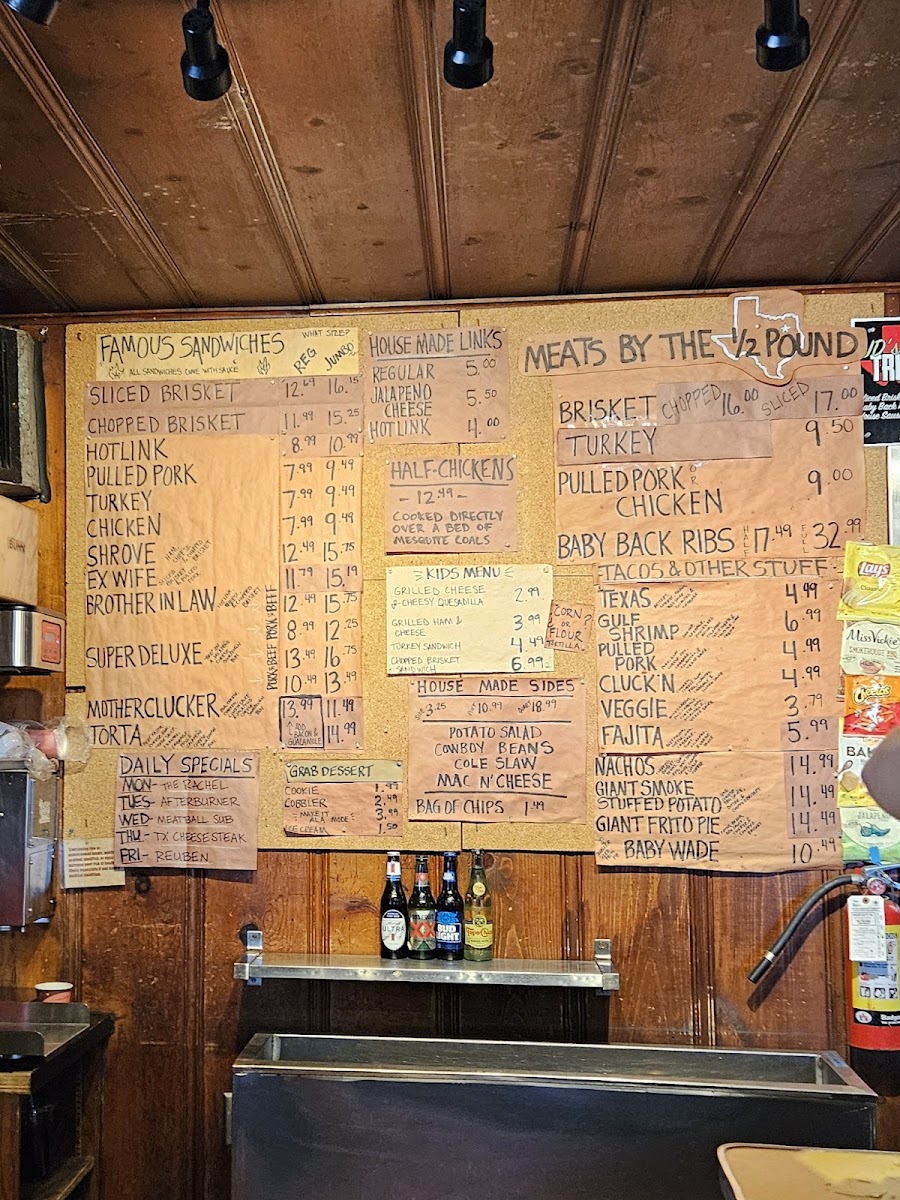 FAMOUS SANDWICHES
WHAT SIZE?
ALL SANDWICHES COME WITH SAUCE
REG JUMBO
SLICED BRISKET 12.69 16.15
CHOPPED BRISKET 11.99 15.25
HOTLINK 8.99 10.99
PULLED PORK 7.99 9.49
TURKEY 7.99 9.49
CHICKEN 7.99 9.49
SHROVE 12.49 15.75
EX WIFE 11.79 15.19
BROTHER IN LAW BEEF 12.49 15.75
PORK 8.99 12.25
SUPER DELUXE BEEF 13.49 16.75
PORK 10.49 13.49
MOTHERCLUCKER 13.99 11.49
TORTA 14.99
ADD BACON & GUACAMOLE
DAILY SPECIALS
MON- THE RACHEL
TUES- AFTERBURNER
WED- MEATBALL SUB
THU- TX CHEESESTEAK
FRI- REUBEN
GRAB DESSERT
COOKIE 1.99
COBBLER 2.49
"MAKE IT ALA MODE" 3.99
ICE CREAM 1.50
HOUSE MADE LINKS
REGULAR 5.00
JALAPENO CHEESE 5.50
HOTLINK 4.00
HALF-CHICKENS
- 12.49 -
COOKED DIRECTLY
OVER A BED OF
MESQUITE COALS
KIDS MENU
GRILLED CHEESE 2.99
OR CHEESY QUESADILLA
GRILLED HAM & 3.99
CHEESE
TURKEY SANDWICH 4.49
CHOPPED BRISKET 6.99
SANDWICH
CORN
OR
FLOUR
TORTILLA
HOUSE MADE SIDES
3.25 10.99 18.99
POTATO SALAD
COWBOY BEANS
COLE SLAW
MAC N' CHEESE
BAG OF CHIPS 1.49
MEATS BY THE 1/2 POUND
BRISKET CHOPPED 16.00 SLICED 17.00
TURKEY 9.50
PULLED PORK OR 9.00
CHICKEN
BABY BACK RIBS HALF 17.49 FULL 32.99
TACOS & OTHER STUFF
TEXAS 4.99
GULF SHRIMP 6.99
PULLED PORK 4.99
CLUCK'N 4.99
VEGGIE 3.79
FAJITA 5.99
NACHOS 14.99
GIANT SMOKE
STUFFED POTATO 14.49
GIANT FRITO PIE 14.49
BABY WADE 10.49
Lay's
Miss Vickie's
SMOKEHOUSE BBQ
Cheetos
JALAPEÑO
ULTRA
XX
BUD
LIGHT
Topo Chico